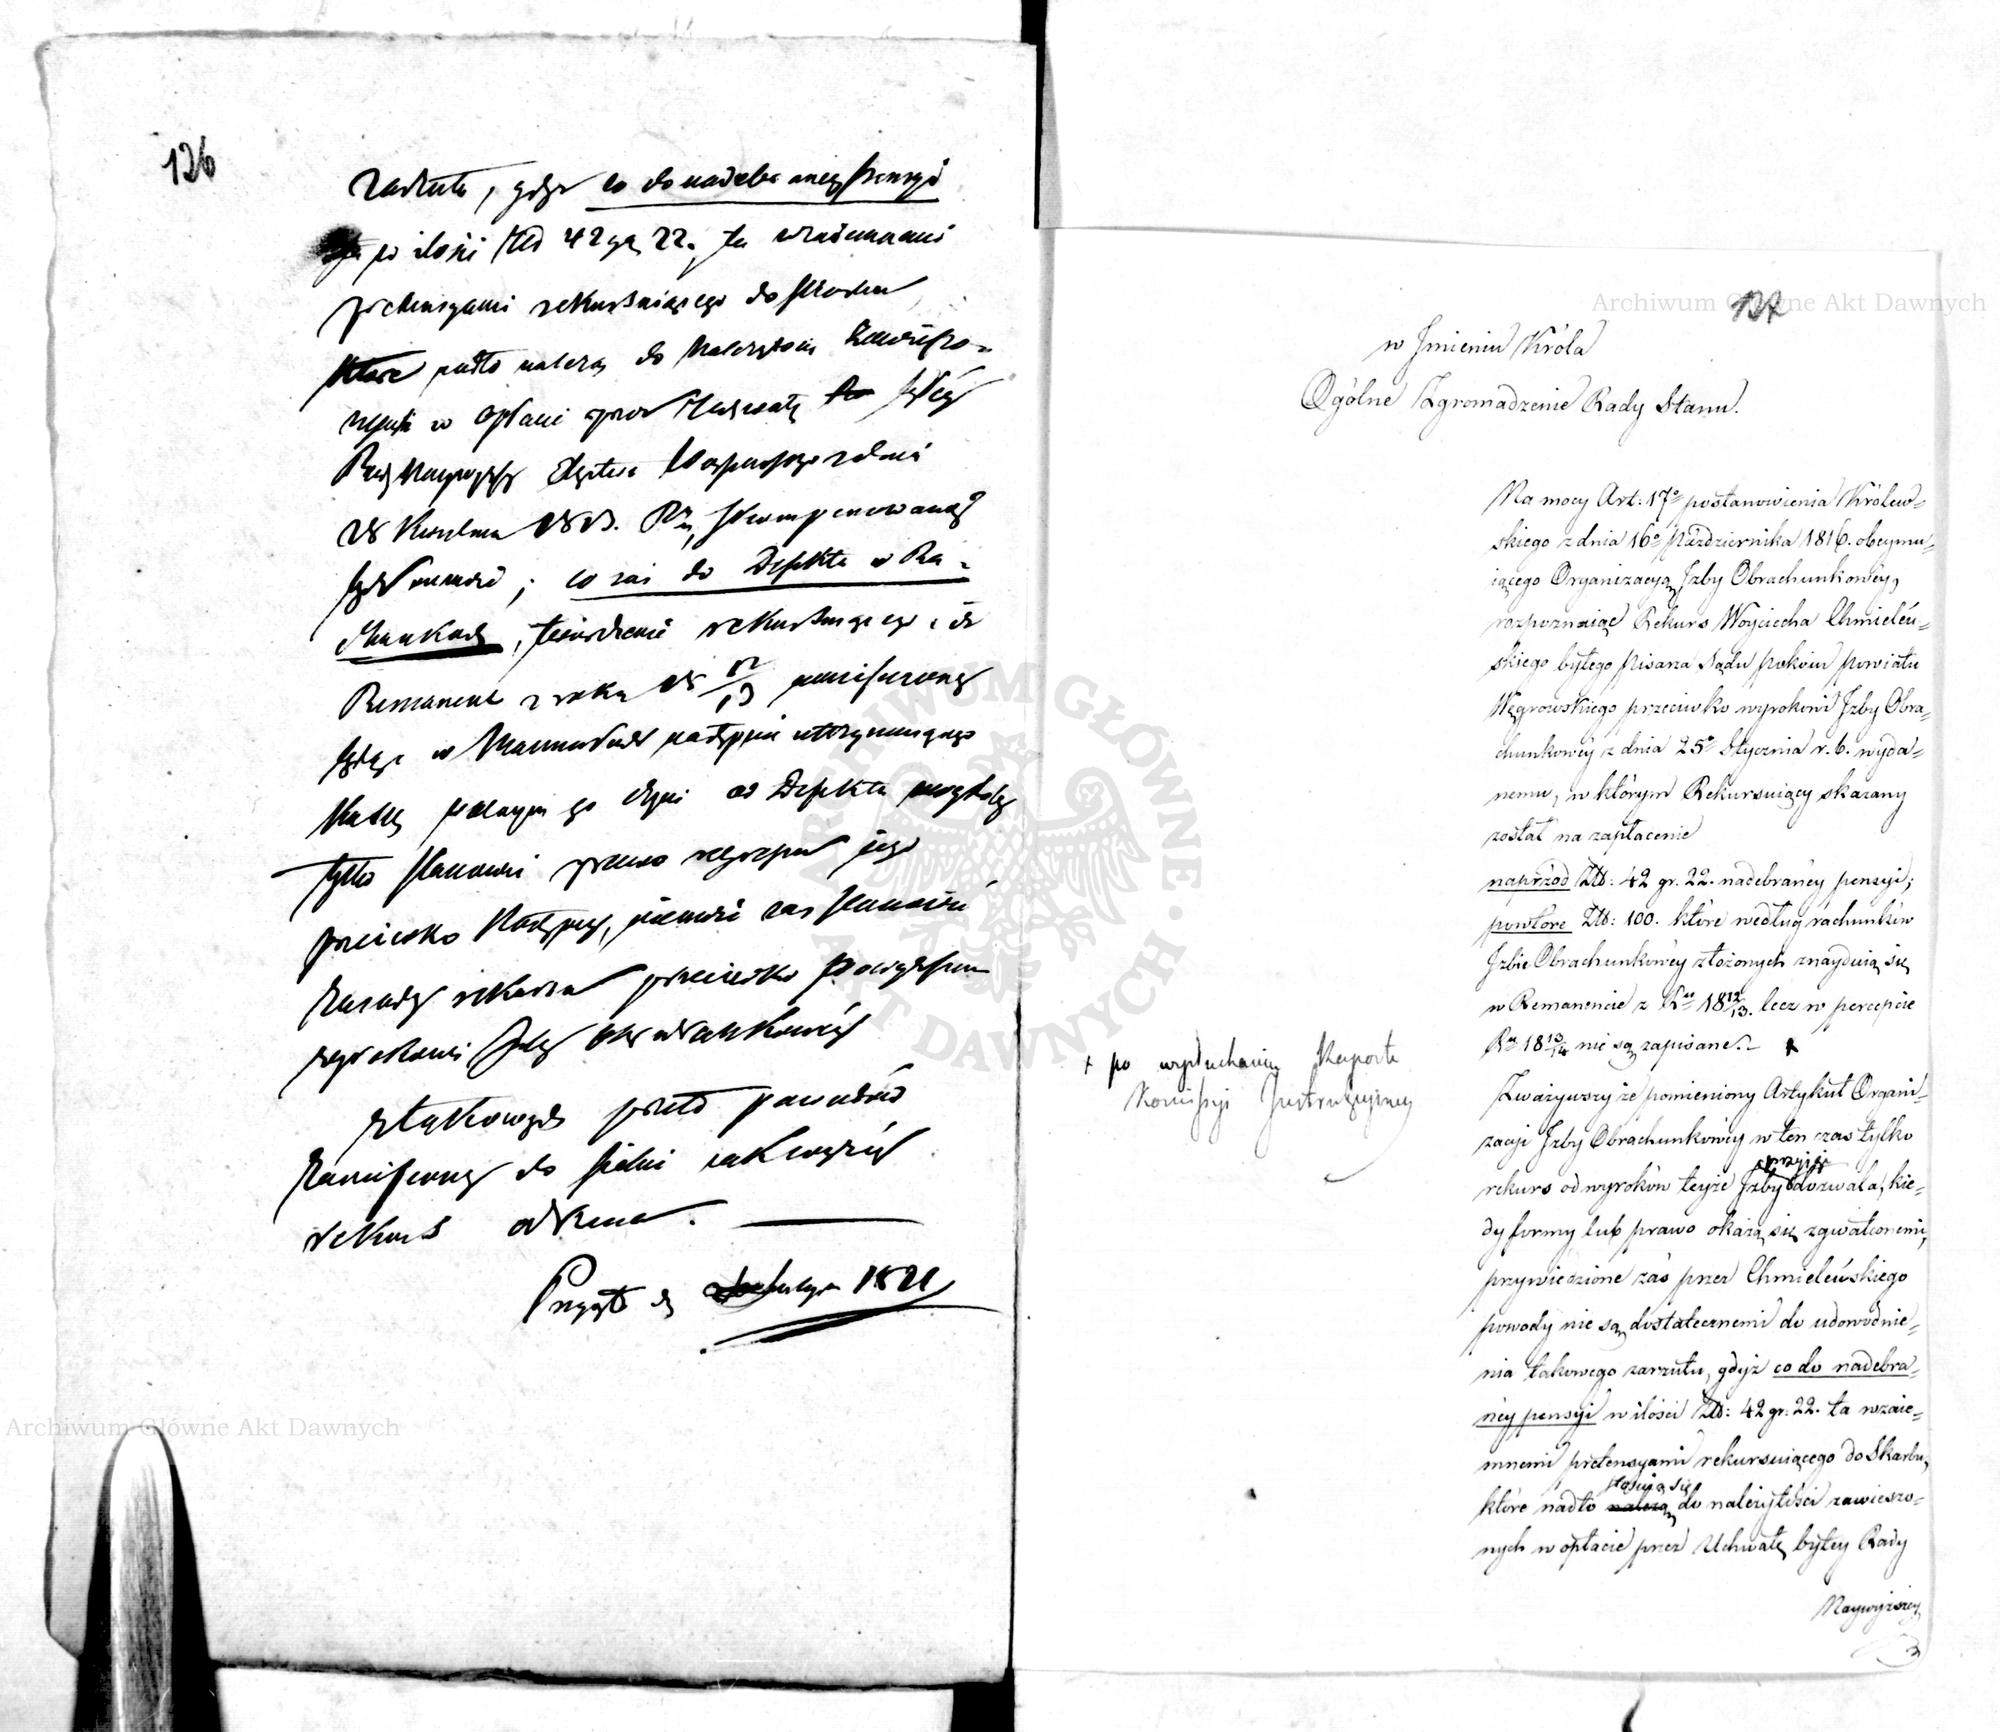 126
zarzutu, gdyż co do nadebraney pensyi
po ilości Złt 42 gr. 22. ta wzaiemnemi
pretensyami rekursuiącego do Skarbu
które nadto należą do należytości zawieszo-
nych w opłacie przez Uchwałę byłey
Rady Naywyższey Xięstwa Warszawskiego z dnia
28 Kwietnia 1813. Ru skompensowaną
być nie może; co zaś do Defektu w Ra-
chunkach, twierdzenie rekursuiącego iż
Remanent z roku 18 12/13 pomieszczony
był w Rachunkach następnie utrzymuiącego
Kassę, nie od Defektu
tylko stanowi prawo regressu iego
przeciwko Następcy, niemoże zaś stanowić
zasady rekursu przeciwko powyższemu
wyrokowi Izby Obrachunkowéy
z takowych przeto powodów
zaniesiony do siebie iak wyżey
rekurs odrzuca.
Przyjęto d. Lutego 1821
127
w Jmieniu Króla
Ogólne Zgromadzenie Rady Stanu.
Na mocy Art: 17o postanowienia Królew-
skiego z dnia 16o Października 1816. obeymu-
iącego Organizacyą Jzby Obrachunkowéy,
rozpoznaiąc Rekurs Woyciecha Chmieleń-
skiego byłego pisarza Sądu pokoiu powiatu
Węgrowskiego przeciwko wyrokowi Jzby Obra-
chunkowéy z dnia 25o Stycznia r. b. wyda-
nemu, w którym Rekursuiący skazany
został na zapłacenie
naprzód Złt: 42 gr. 22. nadebranéy pensyi;
powtóre Złt: 100. które według rachunków
Jzbie Obrachunkowéy złożonych znayduią się
w Remanencie z Ru 18 12/13. lecz w percepcie
Ru 18 13/14 nie są zapisane. +
+ po wysłuchaniu Raportu
Kommissyi Instrukcyiney
Zważywszy że pomieniony Artykuł Organi-
zacyi Jzby Obrachunkowéy w ten czas tylko
przyjąć
rekurs od wyroków teyże Jzby dozwala, kie-
dy formy lub prawo okażą się zgwałconemi,
przywiedzione zaś przez Chmieleńskiego
powody nie są dostatecznemi do udowodnie-
nia takowego zarzutu, gdyż co do nadebra-
néy pensyi w ilości Złt: 42 gr: 22. ta wzaie-
mnemi pretensyami rekursuiącego do Skarbu,
stosują się
które nadto należą do należytości zawieszo-
nych w opłacie przez Uchwałę byłey Rady
Naywyższey
3
Archiwum Główne Akt Dawnych
Archiwum Główne Akt Dawnych
ARCHIWUM GŁÓWNE AKT DAWNYCH